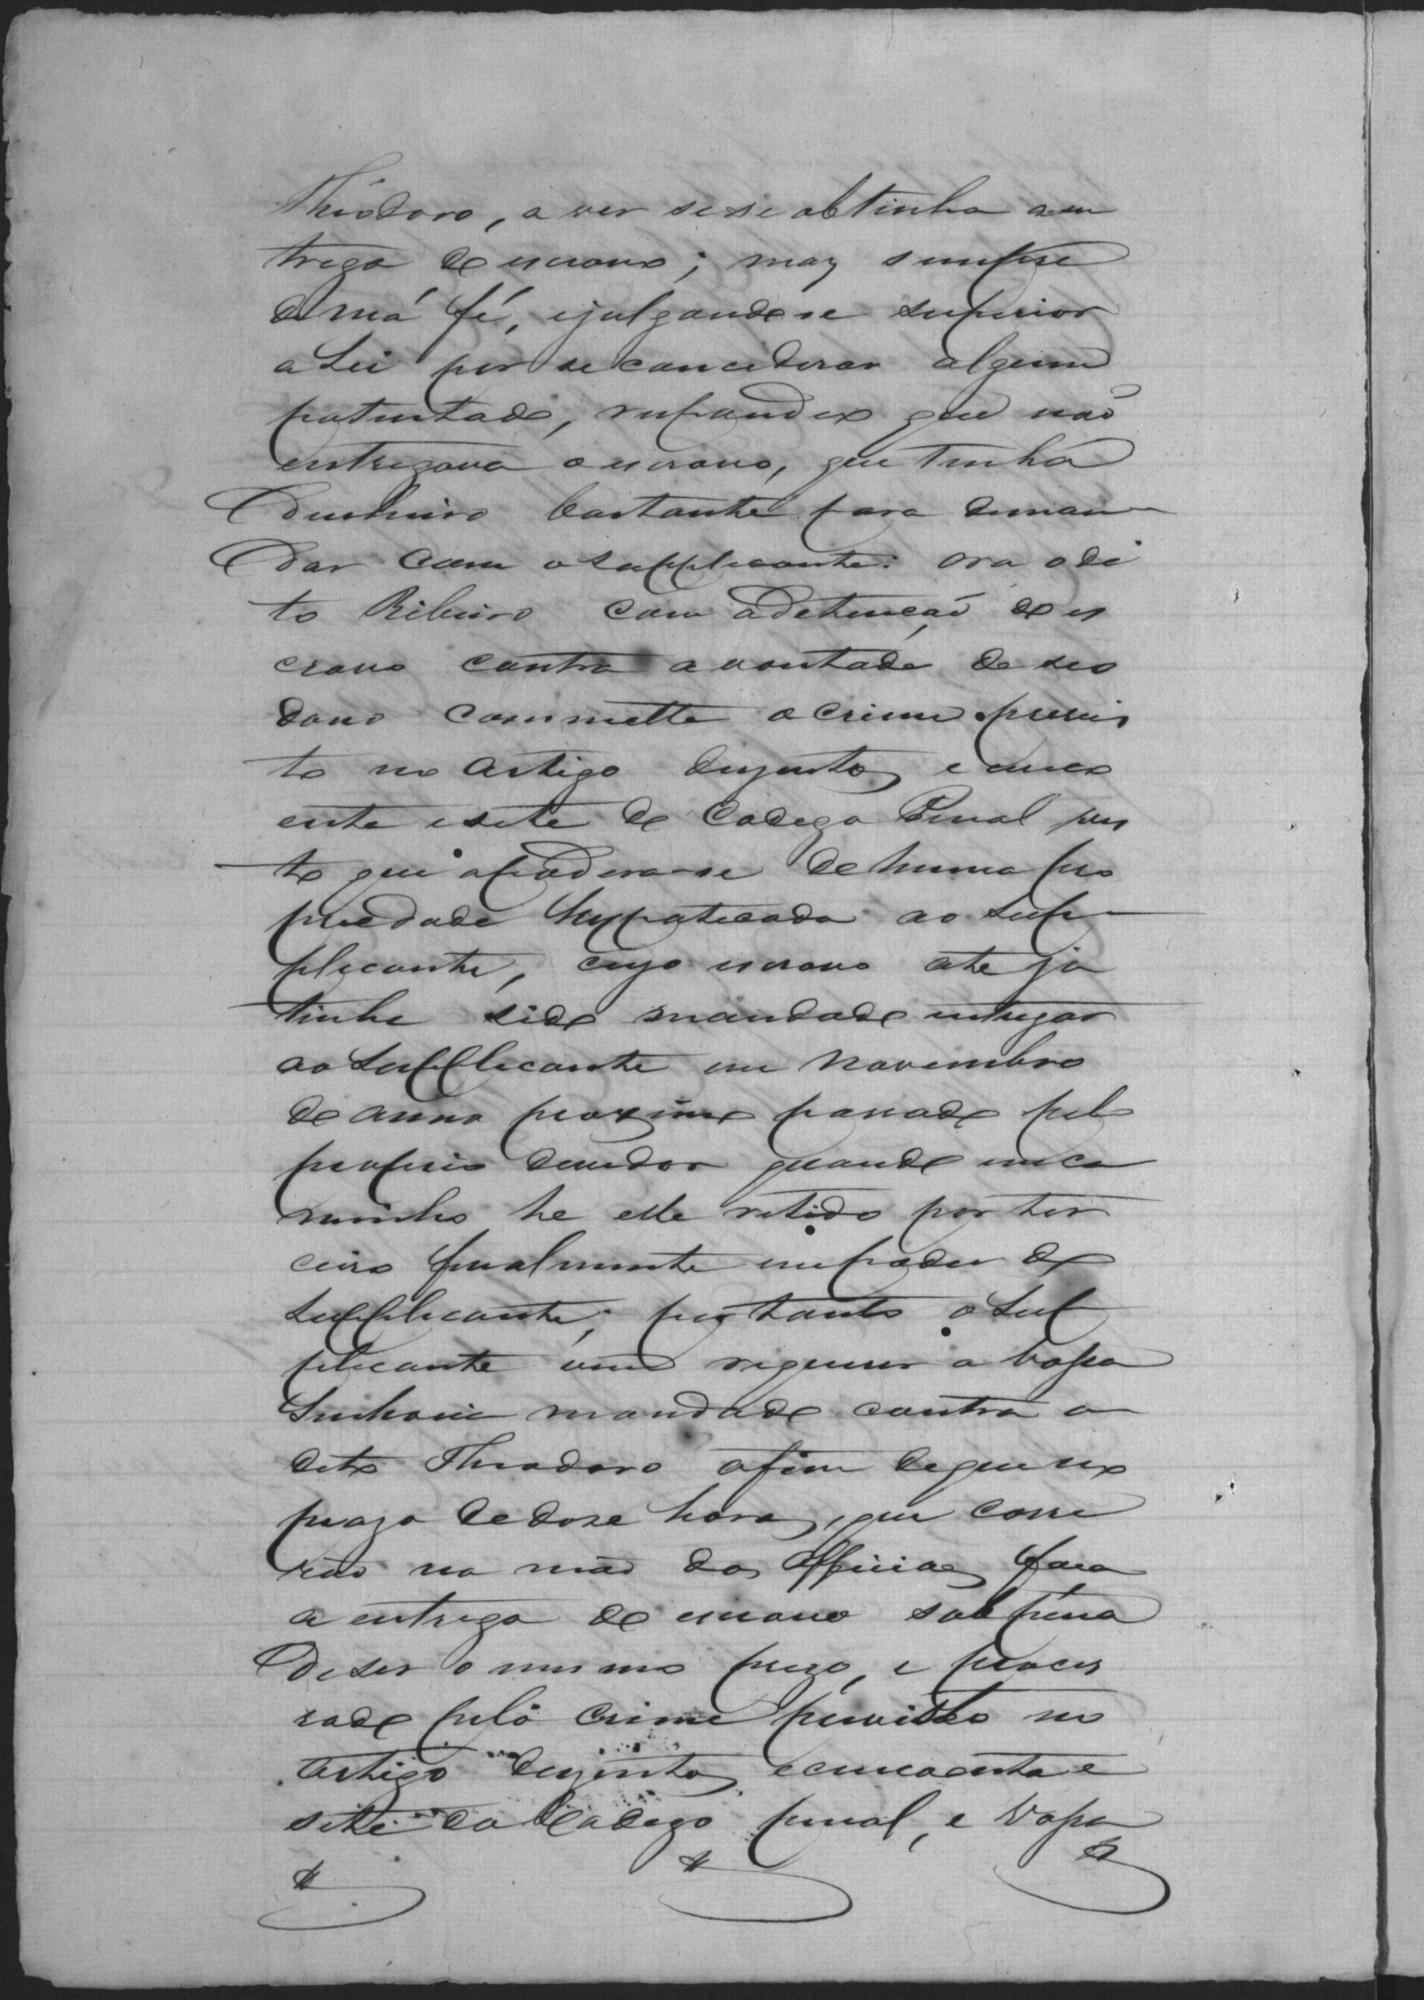 Theodoro, a ver se se obtinha a en
trega do escravo; mas sempre
de má fé, e julgando se superior
a Lei por se conciderar algum
potentado, respondeo que não
entregava o escravo, que tinha
dinheiro bastante para deman
dar com o supplicante: ora o di
to Ribeiro com a detenção do es
cravo contra a vontade de seo
dono commette o crime previs
to no artigo duzentos e cinco
enta e sete do Codego Penal vis
to que apodera-se de huma pro
priedade hypotecada ao sup
plicante, cujo escravo ate ja
tinha sido mandado entregar
ao supplicante em novembro
do anno proximo passado pelo
proprio devedor quando em ca
minho he elle retido por ter
ceiro finalmente em poder do
supplicante; portanto o sup
plicante vem requerer a Vossa
Senhoria mandado contra o
dito Theodoro afim de que no
prazo de doze horas, que corre
rão na mão dos Officiaes faça
a entrega do escravo sob pena
de ser o mesmo prezo, e proces
sado pelo crime previsto no
artigo duzentos e cincoenta e
sete do Codego penal, e Vossa